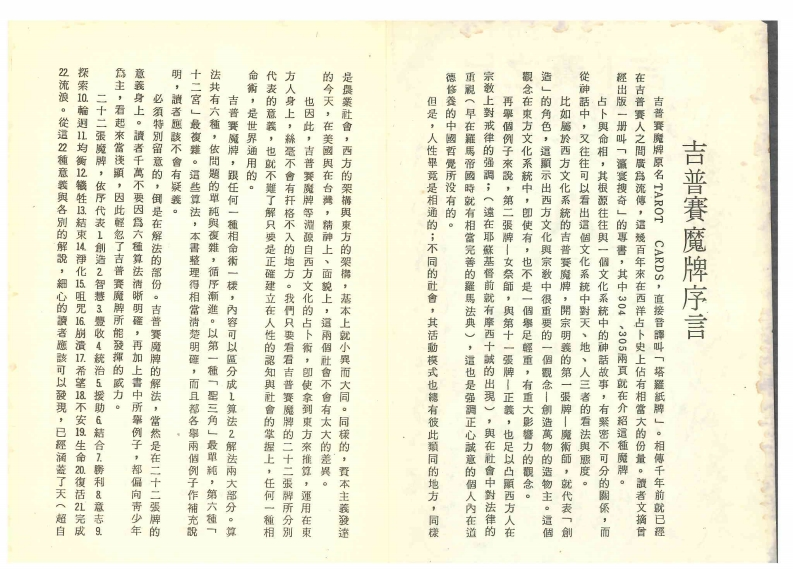 吉普賽魔牌序言
吉普賽魔牌原名TAROT CARDS，直接音譯叫「塔羅紙牌」。相傳千年前就已經
在吉普賽人之間廣為流傳，這幾百年來在西洋占卜史上佔有相當大的份量。讀者文摘曾
經出版一册叫「瀛寰搜奇」的專書，其中304、305兩頁就在介紹這種魔牌。
占卜與命相，其根源往往與一個文化系統中的神話故事，有緊密不可分的關係，而
從神話中，又往往可以看出這個文化系統中對天、地、人三者的看法與態度。
比如屬於西方文化系統的吉普賽魔牌，開宗明義的第一張牌—魔術師，就代表「創
造」的角色，這顯示出西方文化與宗教中很重要的一個觀念—創造萬物的造物主。這個
觀念在東方文化系統中，卽使有，也不是一個舉足輕重，有重大影響力的觀念。
再舉個例子來說，第二張牌—女祭師，與第十一張牌—正義，也足以凸顯西方人在
宗敎上對戒律的强調；（遠在耶穌基督前就有摩西十誡的出現），與在社會中對法律的
重視（早在羅馬帝國時就有相當完善的羅馬法典），這也是强調正心誠意的個人內在道
德修養的中國哲覺所沒有的。
但是，人性畢竟是相通的；不同的社會，其活動模式也總有彼此類同的地方，同樣
是農業社會，西方的架構與東方的架構，基本上就小異而大同。同樣的，資本主義發達
的今天，在美國與在台灣，精神上、面貌上，這兩個社會不會有太大的差異。
也因此，吉普賽魔牌等淵源自西方文化的占卜術，卽使拿到東方來推算，運用在東
方人身上，絲毫不會有扞格不入的地方。我們只要看看吉普賽魔牌的二十二張牌所分別
代表的意義，也就不難了解只要是正確建立在人性的認知與社會的掌握上，任何一種相
命術，是世界通用的。
吉普賽魔牌，跟任何一種相命術一樣，內容可以區分成1.算法2.解法兩大部分。算
法共有六種，依問題的單純與複雜，循序漸進。以第一種「聖三角」最單純，第六種「
十二宮」最複雜。這些算法，本書整理得相當清楚明確，而且都各舉兩個例子作補充說
明，讀者應該不會有疑義。
必須特別留意的，倒是在解法的部份。吉普賽魔牌的解法，當然是在二十二張牌的
意義身上。讀者千萬不要因爲六種算法清晰明確，再加上書中所舉例子，都偏向靑少年
爲主，看起來當淺顯，因此輕忽了吉普賽魔牌所能發揮的威力。
二十二張魔牌，依序代表1.創造2.智慧3.豐收4.統治5.援助6.結合7.勝利8.意志9.
探索10.輪迴11.均衡12.犧牲13.結束14.淨化15.咀咒16.崩潰17.希望18.不安19.生命20.復活21.完成
22.流浪。從這22種意義與各別的解說，細心的讀者應該可以發現，已經涵蓋了天（超自